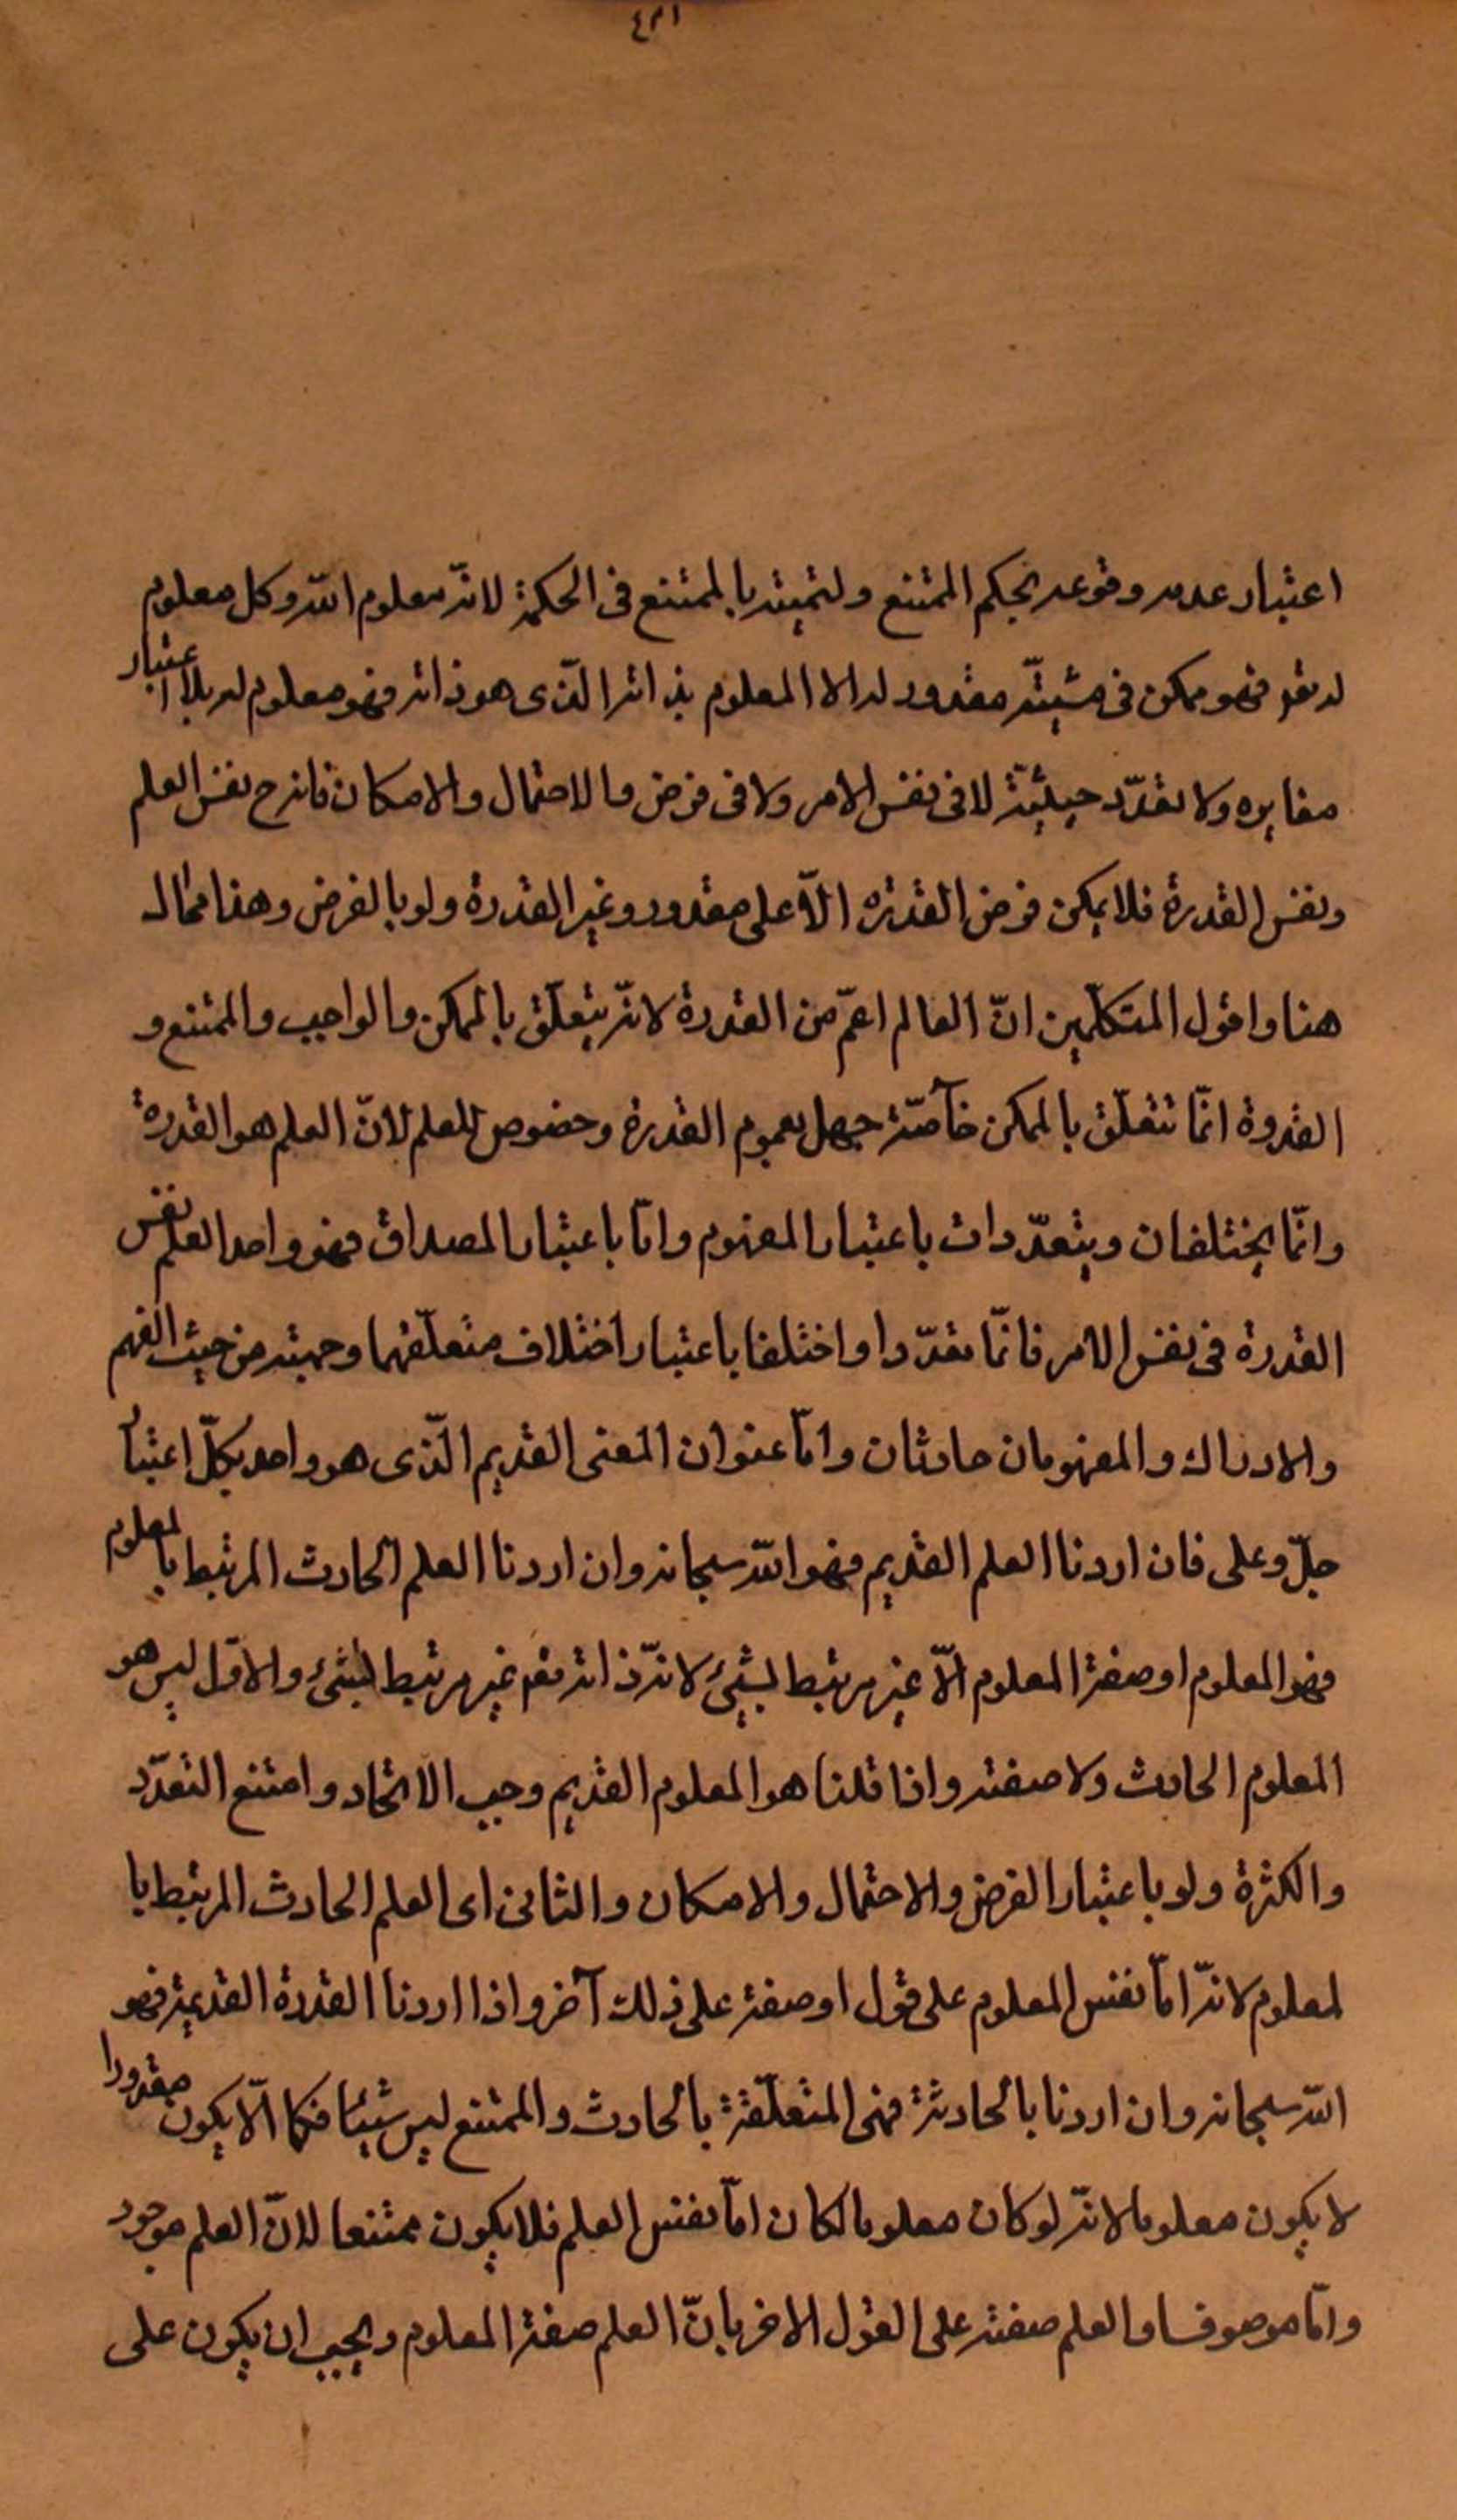 ٤٣١
اعتبار عدم وقوعه بحكم الممتنع ولتميته بالممتنع فى الحكمة لانّه معلوم اللّه وكل معلوم
له تعم فهو ممكن فى مشيّته مقدور له الا المعلوم بذاته الّذى هو ذاته فهو معلوم له بلا اعتبار
مغايره ولا تعدّد حيثيّة لا فى نفس الامر ولا فى فرض والاحتمال والامكان فانه ح نفس العلم
ونفس القدرة فلا يمكن فرض القدره الّا على مقدور وغير القدرة ولو بالفرض وهذا محال
هنا واقول المتكلّمين انّ العالم اعمّ من القدرة لانّه يتعلّق بالممكن والواجب والممتنع و
القدوة انّما تتعلّق بالممكن خاصّة جهل بعموم القدرة وخصوص للعلم لانّ العلم هو القدرة
وانّما يختلفان ويتعدّدان باعتبار المفهوم وامّا باعتبار المصداق فهو واحد العلم نفس
القدرة فى نفس الامر فانّما تعدّدا واختلفا باعتبار اختلاف متعلّقهما وجهته من حيث الفهم
والادراك والمفهومان حادثان وامّا عنوان المعنى القديم الّذى هو واحد بكلّ اعتبار
جلّ وعلى فان اردنا العلم القديم فهو اللّه سبحانه وان اردنا العلم الحادث المرتبط بالمعلوم
فهو المعلوم او صفة المعلوم الّا غير مرتبط بشئ لانّه ذاته تعم غير مرتبط بشئ والاوّل ليس هو
المعلوم الحادث ولا صفته واذا قلنا هو المعلوم القديم وجب الاتحاد وامتنع التعدّد
والكثرة ولو باعتبار الفرض والاحتمال والامكان والثانى اى العلم الحادث المرتبط با
لمعلوم لانّه امّا نفس المعلوم على قول او صفة على ذلك آخر واذا اردنا القدرة القديمة فهو
اللّه سبحانه وان اردنا بالحادثة فهى المتعلّقة بالحادث والممتنع ليس شيئا فكما الّا يكون مقدورا
لا يكون معلوما لانّه لو كان معلوما لكان امّا نفس العلم فلا يكون ممتنعا لانّ العلم موجود
وامّا موصوفا والعلم صفته على القول الاخر بانّ العلم صفة المعلوم ويجب ان يكون على